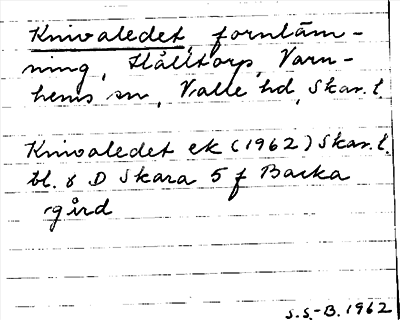 Knivaledet, fornläm-
ning, Hålltorp, Varn-
hems sn, Valle hd, Skar. l.
Knivaledet ek (1962) Skar. l.
bl. 8 D Skara 5 f Backa
gård
S.S.-B. 1962